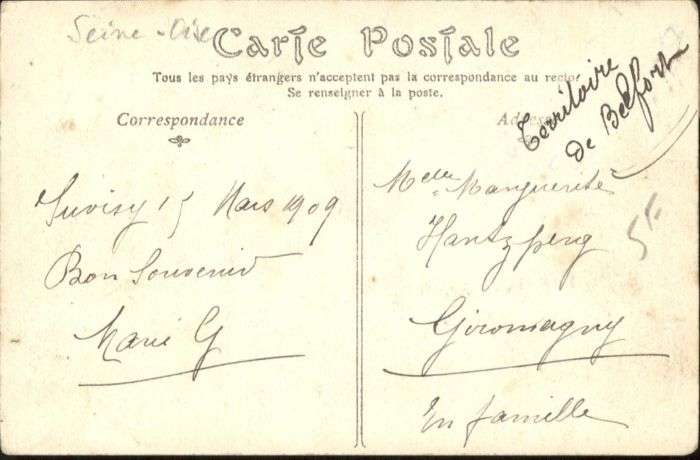 Seine-Oise
Carte Postale
Tous les pays étrangers n'acceptent pas la correspondance au recto
Se renseigner à la poste.
Correspondance
Juvisy 15 Mars 1909
Bon Souvenir
Marie G
Adresse
Territoire
de Belfort
Melle Marguerite
Hantzperg
Giromagny
En famille
5F